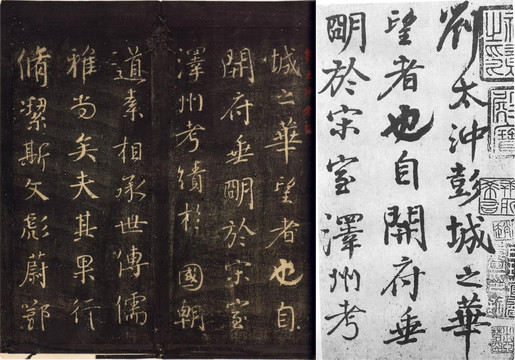 劉太沖彭城之華
望者也自開府垂
眀於宋室澤州考
城之華望者也自
開府垂眀於宋室
澤州考績於國朝
道素相承世傳儒
雅尚矣夫其果行
脩潔斯文彪蔚鄂